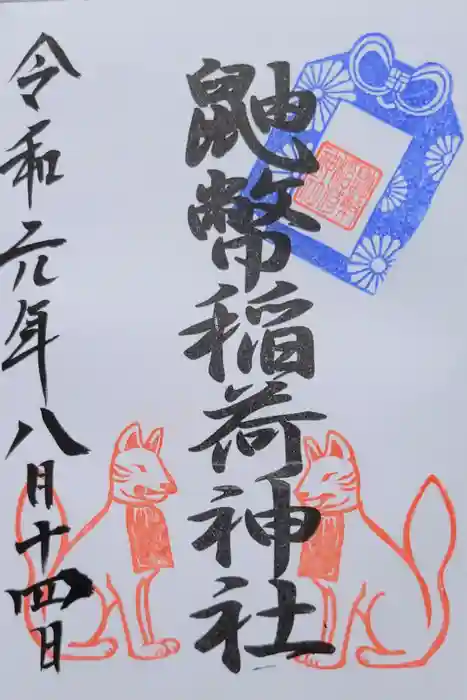 鼬幣稲荷神社
令和元年八月十四日